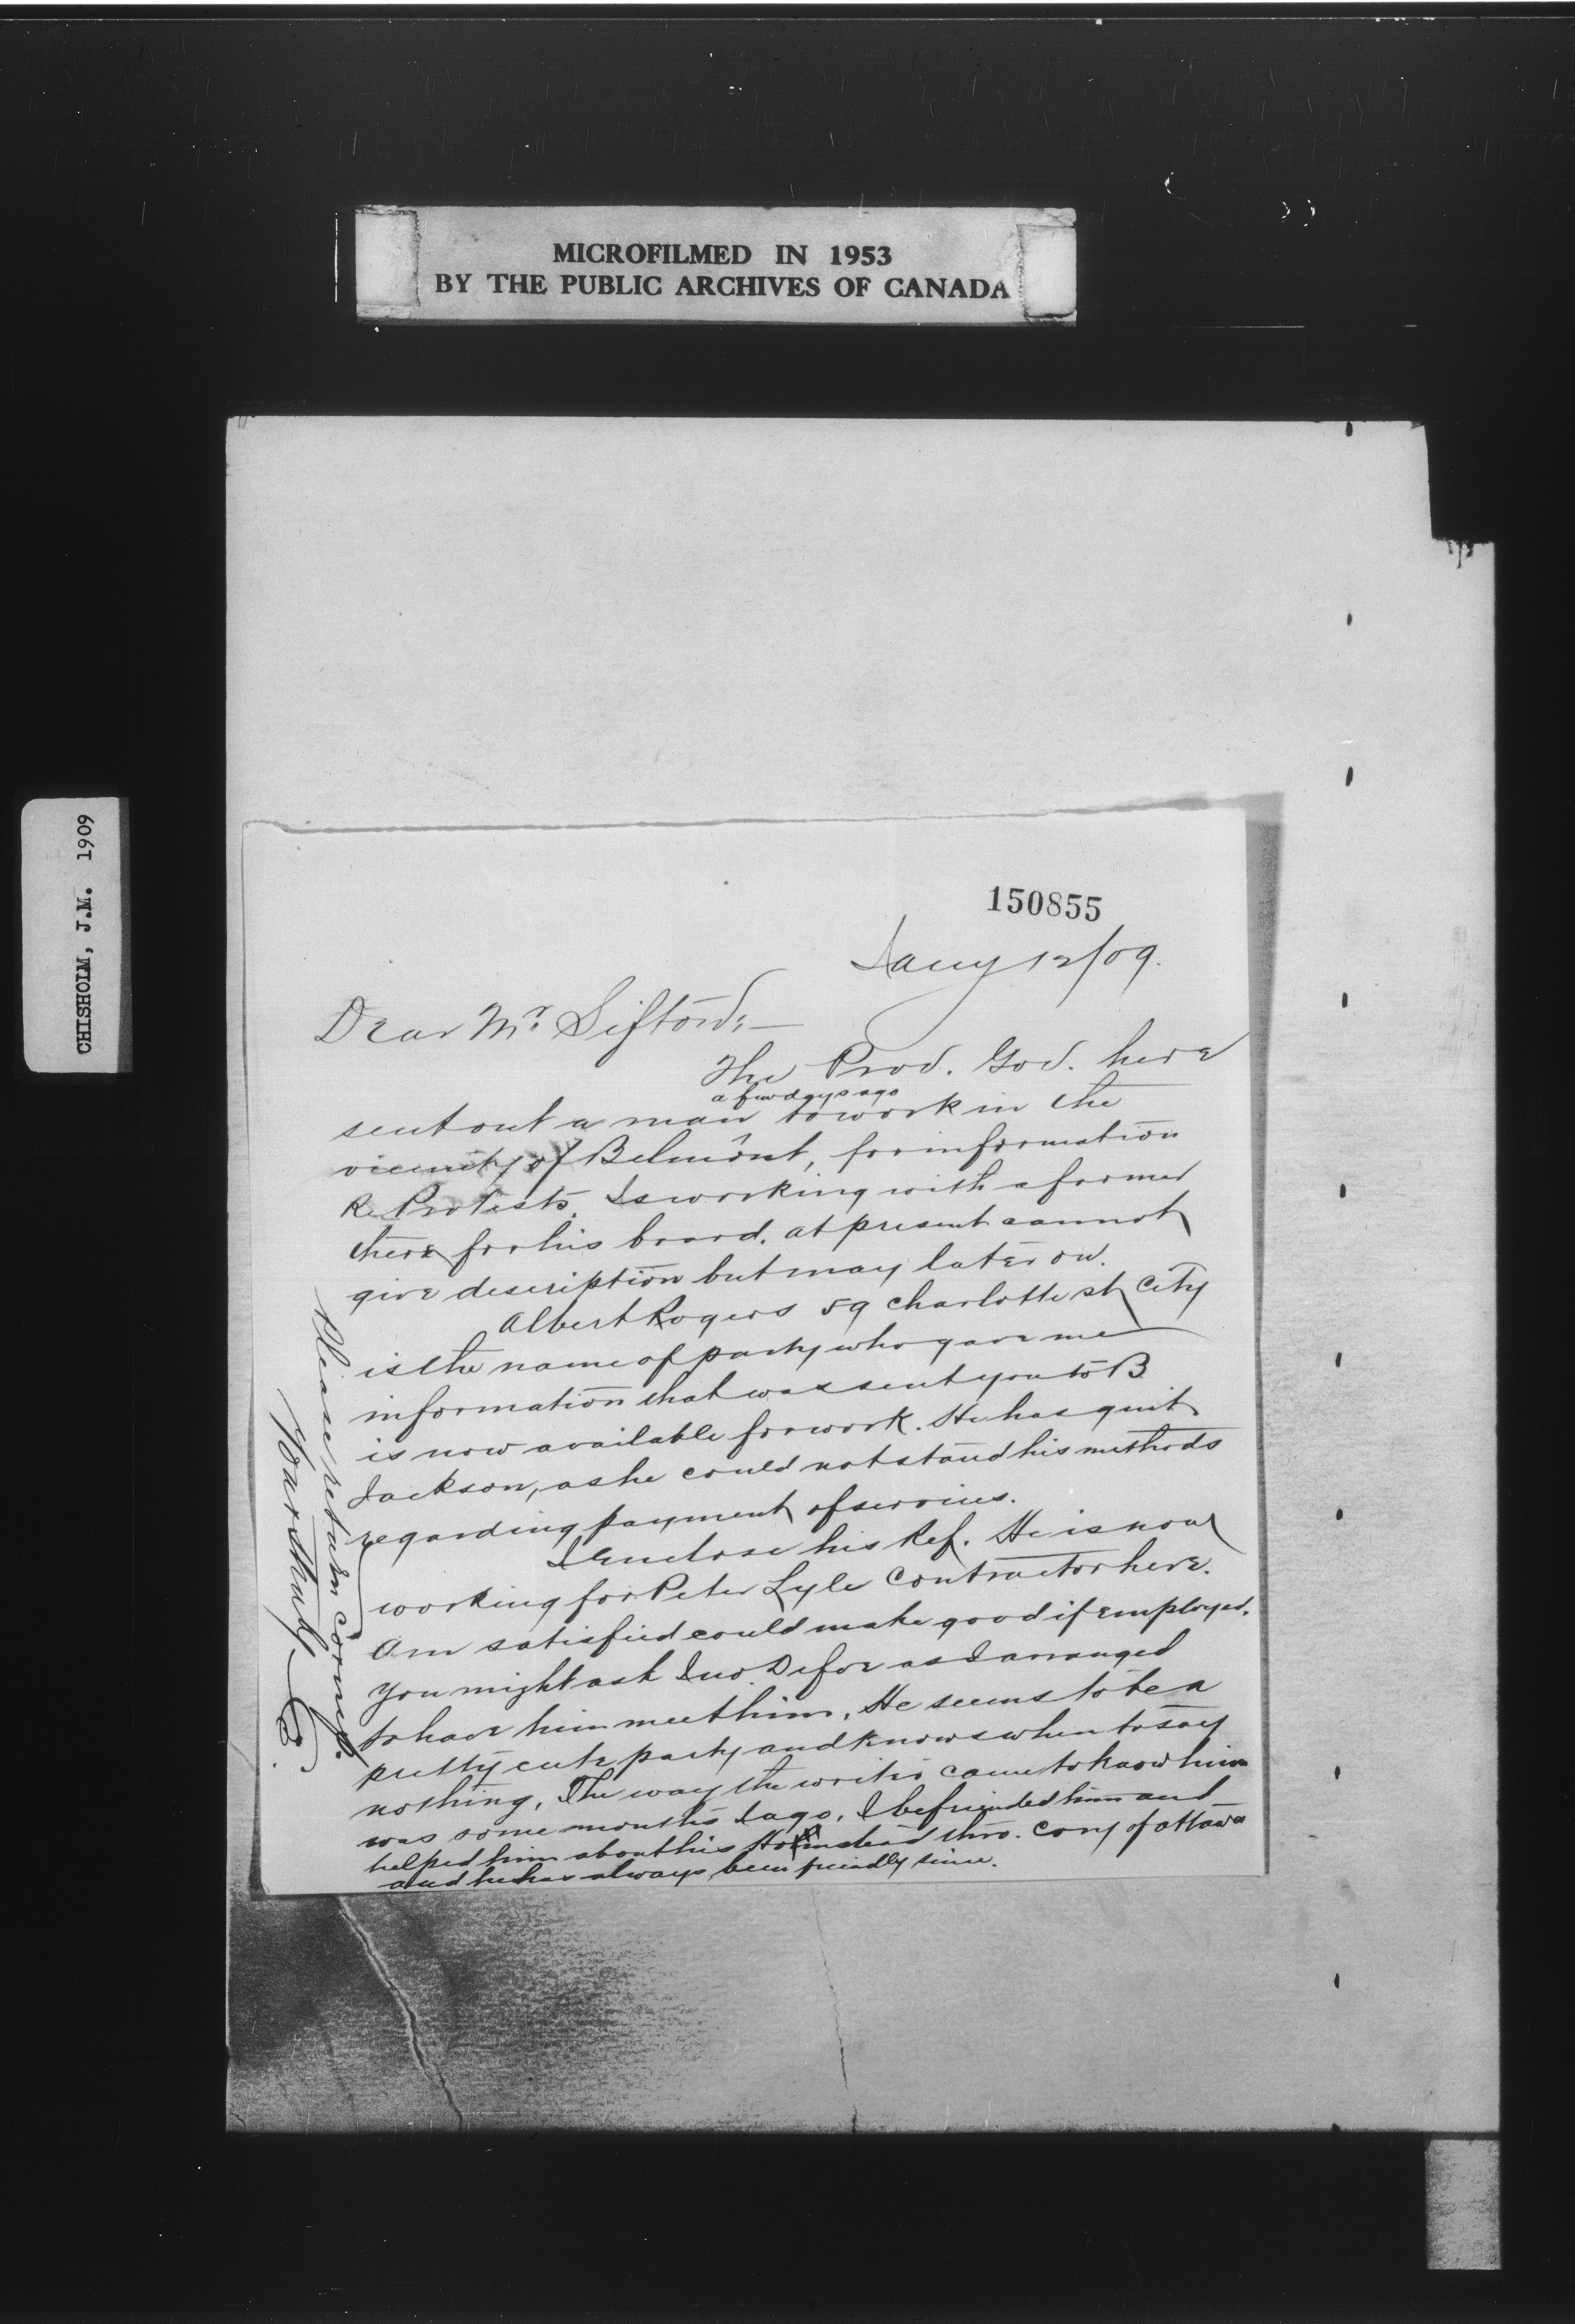 MICROFILMED IN 1953
BY THE PUBLIC ARCHIVES OF CANADA
CHISHOLM, J.M. 1909
150855
Jany 12/09.
Dear Mr. Sifton:—
The Prov. Gov. here
a few days ago
sent out a man to work in the
vicinity of Belmont, for information
Re Protests. Is working with a farmer
there for his board. at present cannot
give description but may later on.
Albert Rogers 59 Charlotte st City
is the name of party who gave me
information that was sent you to B
is now available for work. He has quit
Jackson, as he could not stand his methods
regarding payment of services.
I Enclose his Ref. He is now
working for Peter Lyle Contractor here.
Am satisfied could make good if Employed.
You might ask Jno. as I arranged
to have him meet him. He seems to be a
pretty cute party and knows when to say
nothing. The way the writer came to know him
was some months ago. I befriended him and
helped him about his Homestead thro. Cory of Ottawa
and he has always been friendly since.
Please return Corresp.
Yours truly
C.